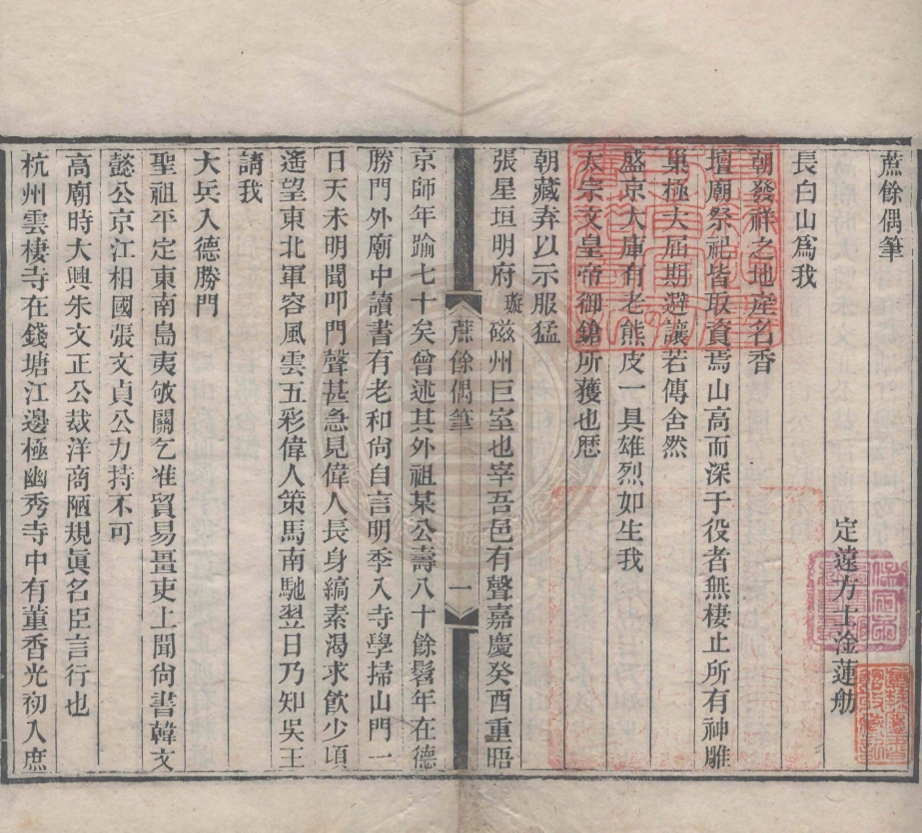 蔗餘偶筆
定遠方士淦蓮舫
長白山爲我
朝發祥之地產名香
壇廟祭祀皆取資焉山高而深于役者無棲止所有神雕
巢極大屆期避讓若傳舍然
盛京大庫有老熊皮一具雄烈如生我
太宗文皇帝御鎗所獲也歷
朝藏弆以示服猛
張星垣明府璇磁州巨室也宰吾邑有聲嘉慶癸酉重晤
蔗餘偶筆 一
京師年踰七十矣曾述其外祖某公壽八十餘髫年在德
勝門外廟中讀書有老和尙自言明季入寺學掃山門一
日天未明聞叩門聲甚急見偉人長身縞素渴求飲少頃
遙望東北軍容風雲五彩偉人策馬南馳翌日乃知吳王
請我
大兵入德勝門
聖祖平定東南島夷敂關乞准貿易畺吏上聞尙書韓文
懿公京江相國張文貞公力持不可
高廟時大興朱文正公裁洋商陋規眞名臣言行也
杭州雲棲寺在錢塘江邊極幽秀寺中有董香光初入庶